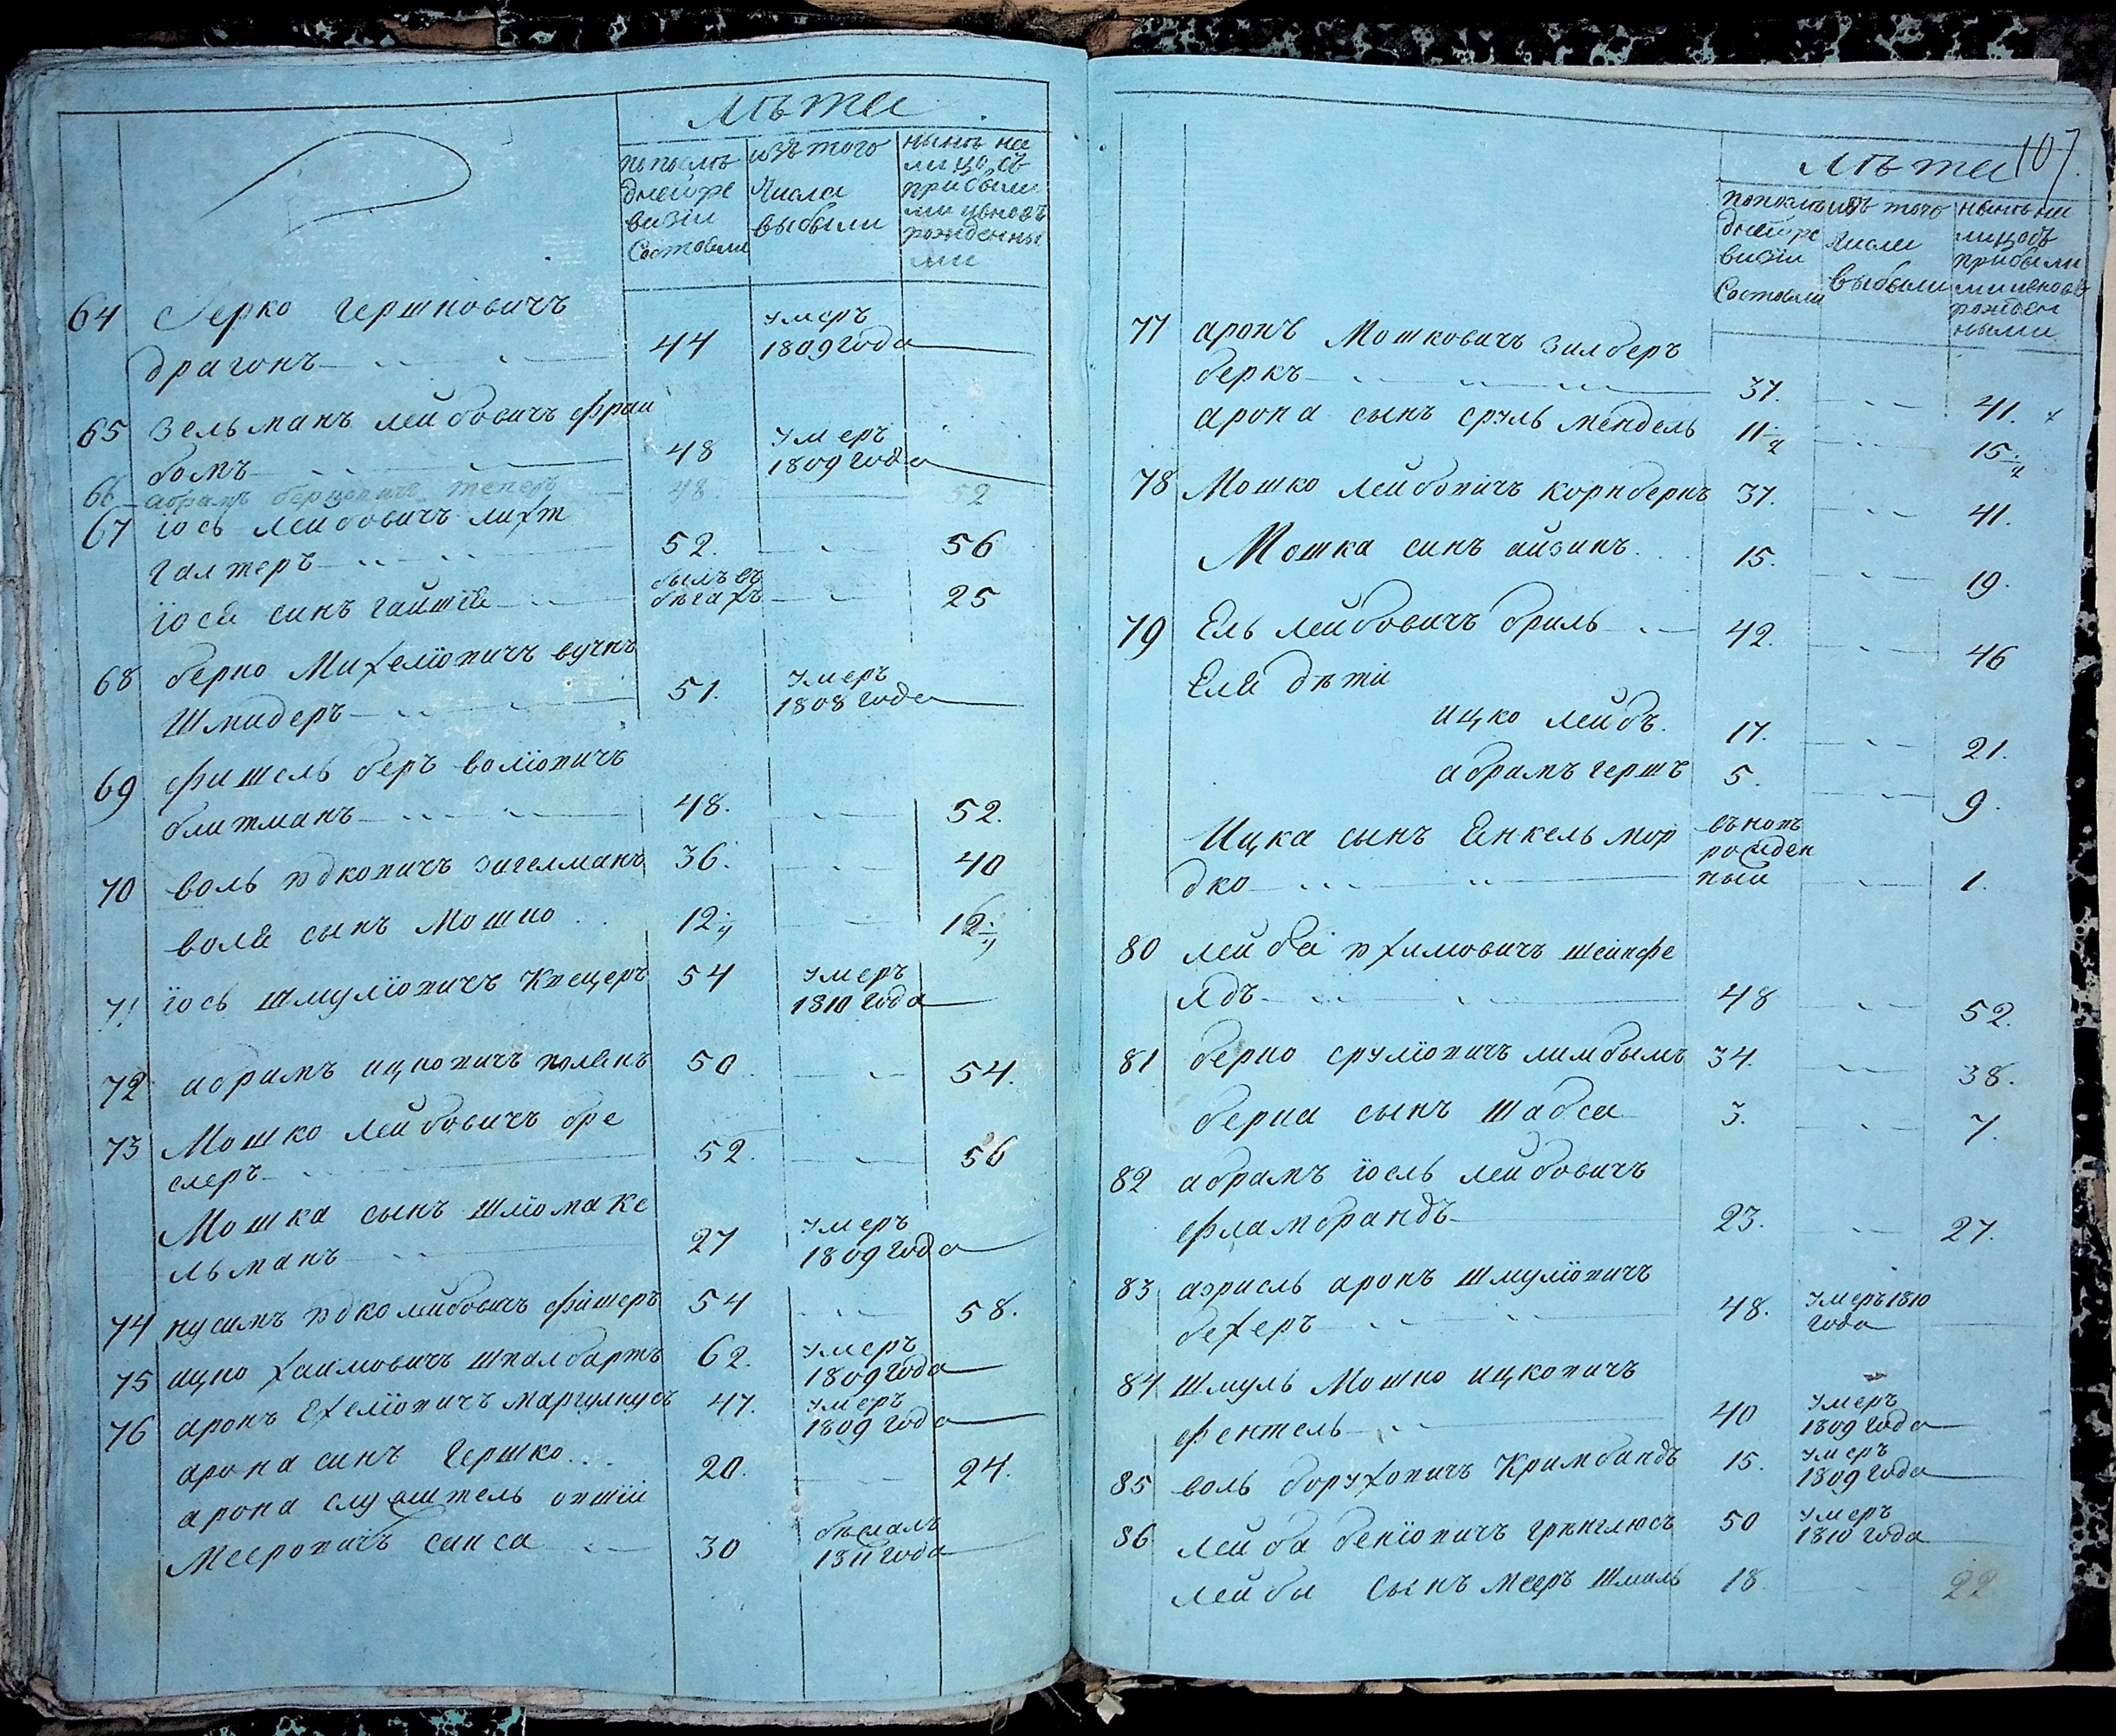 Лѣта
по послѣ
дней ре
визіи
Состояли
изъ того
Числа
выбыли
нынѣ на
лицо съ
прибыли
ми и вновъ
рожденны
ми
64 Берко гершковичъ
драгонъ 44 умеръ
1809 года
65 Зельманъ лейбовичъ фраи
бомъ 48 умеръ
1809 года
66 абрамъ берковичъ 48 52
67 іось лейбовичъ лихт
галтеръ 52. 56
іося синъ гайшія былъ въ
бѣгахъ 25
68 берко Михеліовичъ вучн
Шнидеръ 51. умеръ
1808 года
69 Фишель беръ воліовичъ
блитманъ 48. 52.
70 воль юдковичъ зигелманъ 36. 40
воля сынъ Мошко 12 16
71 іось Шмуліовичъ Кнецеръ 54 умеръ
1810 года
72 абрамъ ицковичъ 50 54.
73 Мошко лейбовичъ бре
слеръ 52. 56
Мошка сынъ шліома Ке
льманъ 27 умеръ
1809 года
74 нусимъ юдко лейбовичъ фишеръ 54 58.
75 ицко хаимовичъ шпалбартъ 62. умеръ
1809 года
76 аронъ Ехеліовичъ маргулнусъ 47. умеръ
1809 года
арона синъ Гершко 20. 24.
арона служитель овшій
Мееровичъ санса 30 бѣжалъ
1811 года
107.
Лѣта
по послѣ
дней ре
визіи
Состояли
изъ того
Числа
выбыли
нынѣ на
лицо съ
прибыли
ми и вновъ
рожден
ными
77 аронъ Мошковичъ Зилберъ
беркъ 37. 41.
арона сынъ сруль мендель 11 15
78 Мошко лейбовичъ корнбернъ 37. 41.
Мошка синъ айзикъ 15. 19.
79 Ель лейбовичъ бриль 42. 46
Еля дѣти
ицко лейбъ. 17. 21.
абрамъ гершъ 5. 9.
Ицка сынъ Янкель мор
дко вновъ
рожден
ный 1.
80 лейба юхимовичъ шейнфе
лдъ 48 52.
81 берко сруліовичъ лимбымъ 34. 38.
берка сынъ шабса 3. 7.
82 абрамъ іосль лейбовичъ
Фламбрандъ 23. 27.
83 азрисль аронъ шмуліовичъ
бехеръ 48. умеръ 1810
года
84 шмуль Мошко ицковичъ
фентель 40 умеръ
1809 года
85 воль боруховичъ Кримбандъ 15. умеръ
1809 года
86 лейба беніовичъ гринглюсъ 50 умеръ
1810 года
лейбы Сынъ Мееръ Шмиль 18. 22